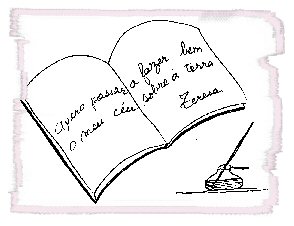 Quero passar a fazer bem
o meu céu sobre a terra
Teresa